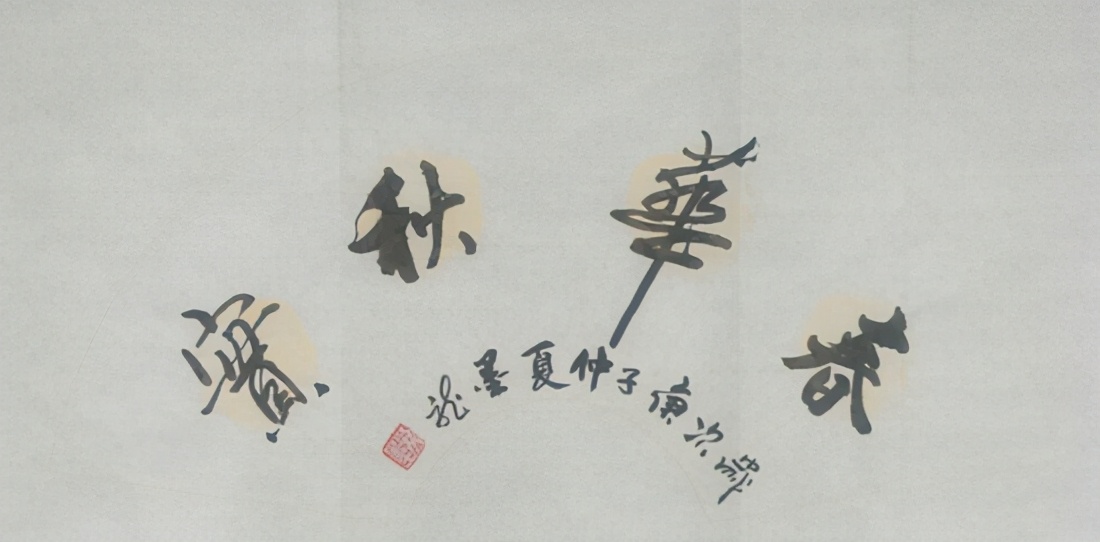 春華秋實
歲次庚子仲夏墨龍